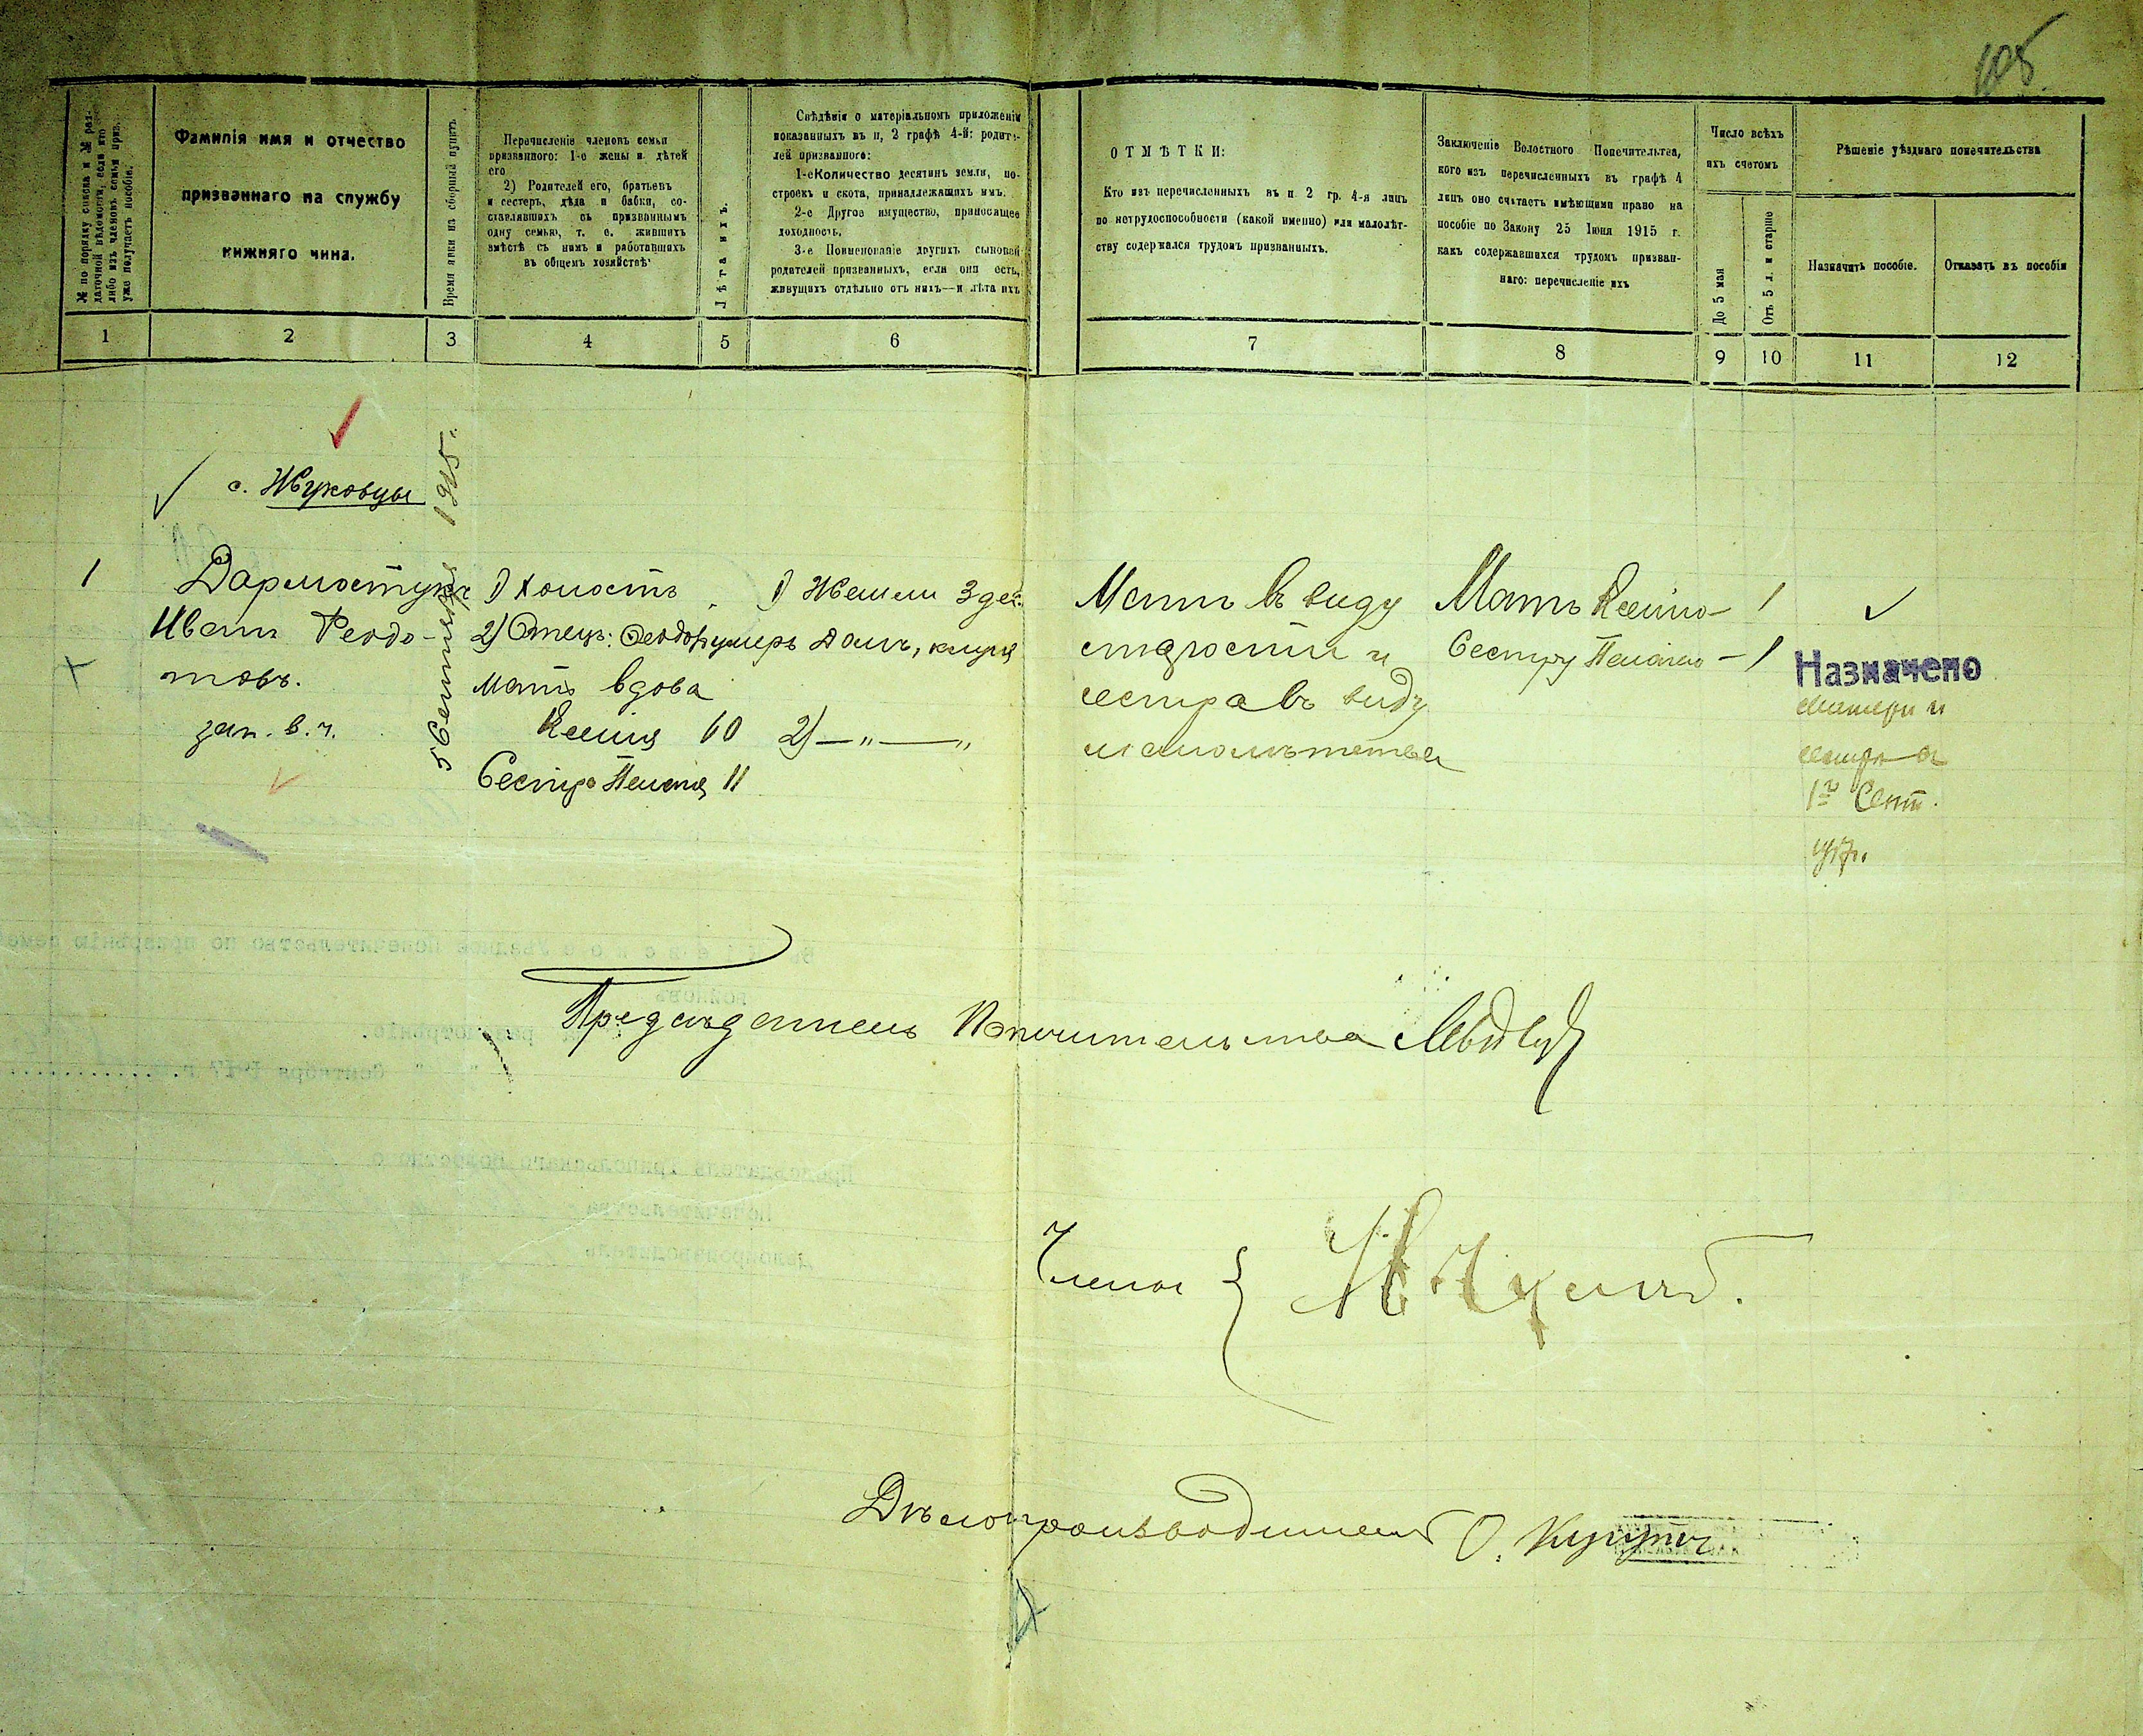 105.
№ по порядку списка и № раз-
даточной вѣдомости, если кто
либо изъ членовъ семьи приз.
уже получаетъ пособіе.
Фамилія имя и отчество
призваннаго на службу
нижняго чина.
Время явки на сборный пунктъ
Перечисленіе членовъ семьи
призваннаго: 1-е жены и дѣтей
его
2) Родителей его, братьевъ
и сестеръ, дѣда и бабки, со-
ставлявшихъ съ призваннымъ
одну семью, т. е. жившихъ
вмѣстѣ съ нимъ и работавшихъ
въ общемъ хозяйствѣ
Лѣта ихъ.
Свѣдѣнія о матеріальномъ приложеніи
показанныхъ въ п, 2 графѣ 4-й: родите-
лей призваннаго:
1-е Количество десятинъ земли, по-
строекъ и скота, принадлежащихъ имъ.
2-е Другое имущество, приносящее
доходность.
3-е Поименованіе другихъ сыновей
родителей призванныхъ, если они есть,
живущихъ отдѣльно отъ нихъ—и лѣта ихъ
ОТМѢТКИ:
Кто изъ перечисленныхъ въ п 2 гр. 4-я лицъ
по нетрудоспособности (какой именно) или малолѣт-
ству содержался трудомъ призванныхъ.
Заключеніе Волостного Попечительтва,
кого изъ перечисленныхъ въ графѣ 4
лицъ оно считаетъ имѣющими право на
пособіе по Закону 25 Іюня 1915 г.
какъ содержавшихся трудомъ призван-
наго: перечисленіе ихъ
Число всѣхъ
ихъ счетомъ
До 5 мая
Отъ 5 л. и старше
Рѣшеніе уѣзднаго попечительства
Назначить пособіе.
Отказать въ пособіи
1 2 3 4 5 6 7 8 9 10 11 12
с. Жуковцы
5 Сентября 1915 г.
1 Дармостукъ
Иванъ Феодо-
товъ.
зап. в. ч.
1) Холостъ
2) Отецъ: Феодотъ умеръ
Мать вдова
Ксенія 60
Сестра Пелагія 11
1) Земли 3 дес.
Домъ, клуня
2) — „ — „
Мать въ виду
старости и
сестра въ виду
малолѣтства
Мать Ксенію – 1
Сестру Пелагію – 1
Назначено
матери и
сестрѣ съ
1го Сент.
1917 г.
Предсѣдатель Попечительства
Члены {
Дѣлопроизводитель